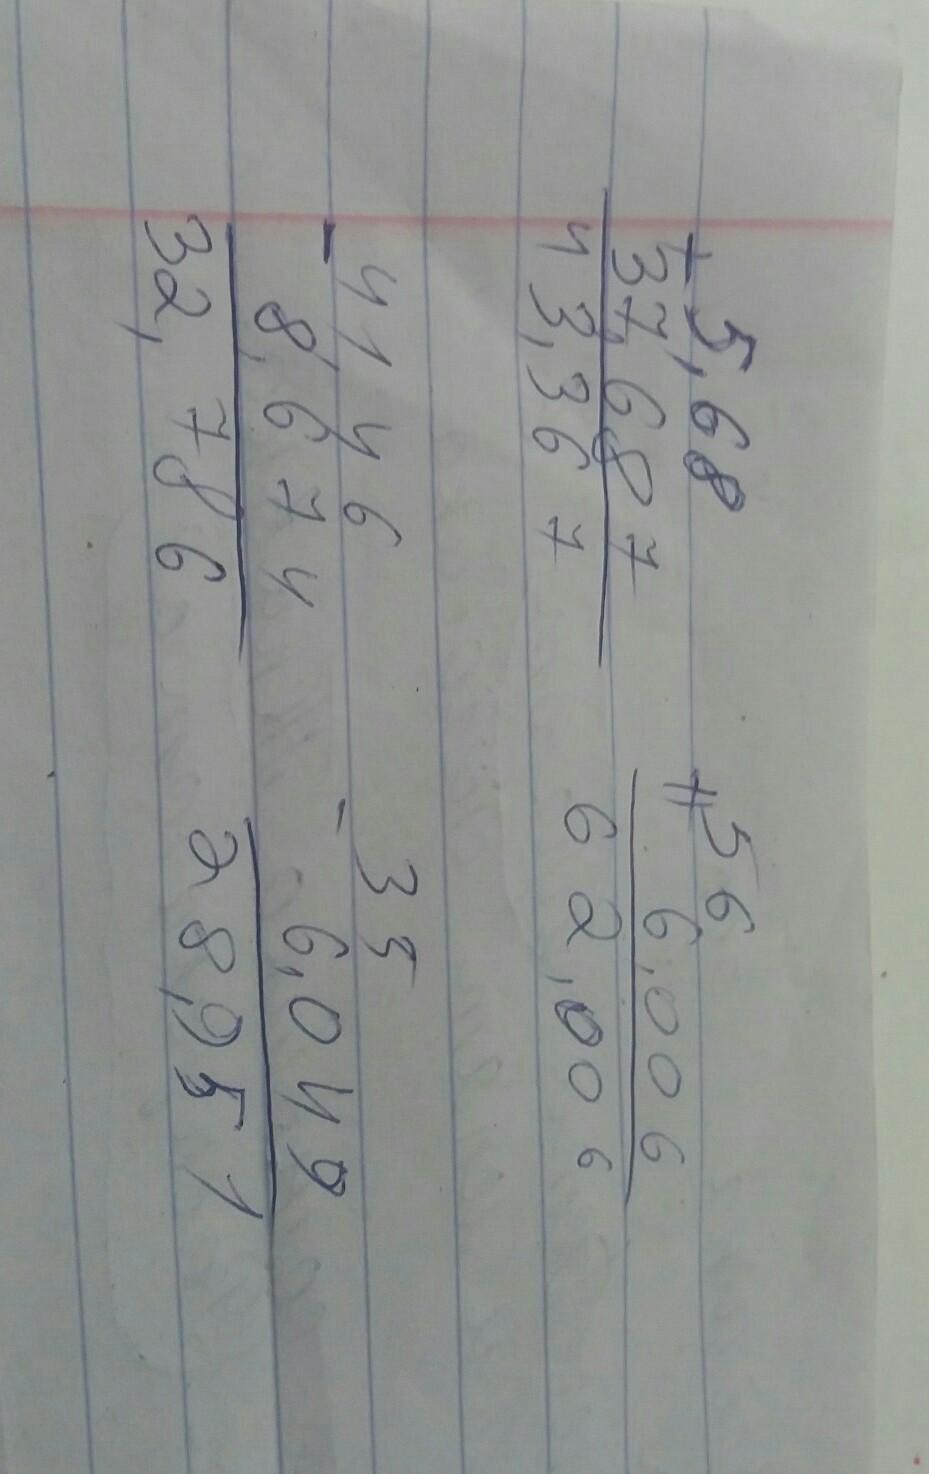 5,68 56
+ +
37,687 6,006
43,367 62,006
41 46 35
- -
8,674 6,049
32,786 28,951